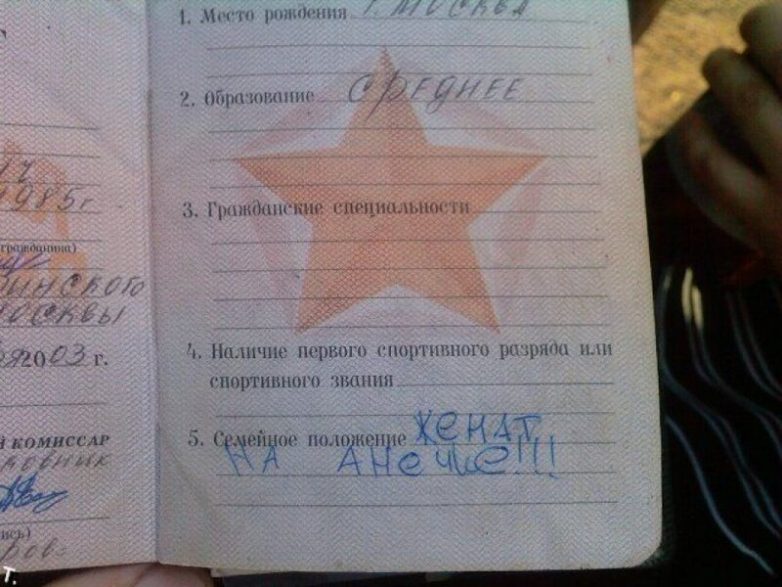 1985 г
гражданина)
инского
Москвы
2003 г.
й комиссар
ись)
1. Место рождения г. Москва
2. Образование среднее
3. Гражданские специальности
4. Наличие первого спортивного разряда или
спортивного звания
5. Семейное положение Женат
на Анечке!!!
т.